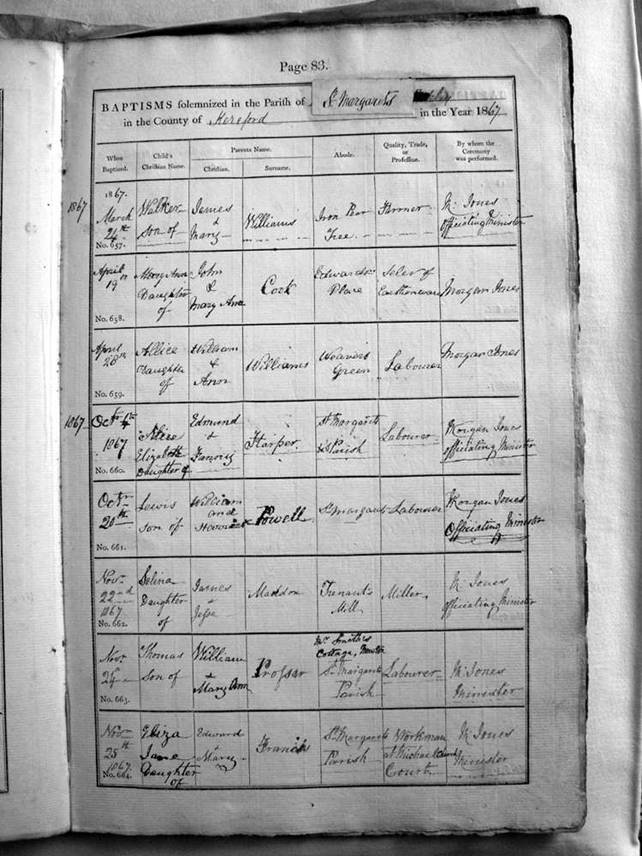 Page 83.
BAPTISMS solemnized in the Parish of St Margarets
in the County of Hereford in the Year 1867
When Baptized. Child's Christian Name. Parents Name. Abode. Quality, Trade, or Profession. By whom the Ceremony was performed.
Christian. Surname.
1867 1867.
March 24th Walker son of James & Mary Williams Iron Pear Tree Farmer M. Jones officiating Minister
No. 657.
April 19th Mary Ann Daughter of John & Mary Ann Cook Edwards Place Seler of Earthenware Morgan Jones
No. 658.
April 28th Allice Daughter of William & Ann Williams Weavers Green Labourer Morgan Jones
No. 659.
1867 Octr 4th 1867 Alice Elizabeth Daughter of Edmund & Fanny Harper St Margarets Parish Labourer Morgan Jones officiating Minister
No. 660.
Octr 20th Lewis son of William and Powell St Margarets Labourer Morgan Jones Officiating Minister
No. 661.
Novr 22nd 1867 Selina Daughter of James & Jesse Maddox Tremant's Mill Miller M Jones officiating Minister
No. 662.
Novr 24 Thomas son of William & Mary Ann Prosser Cottage, St Margarets Parish Labourer M Jones Minister
No. 663.
Novr 25th 1867 Eliza Jane Daughter of Edward & Mary Francis St Margarets Parish Workman at Michaelchurch Court M Jones Minister
No. 664.